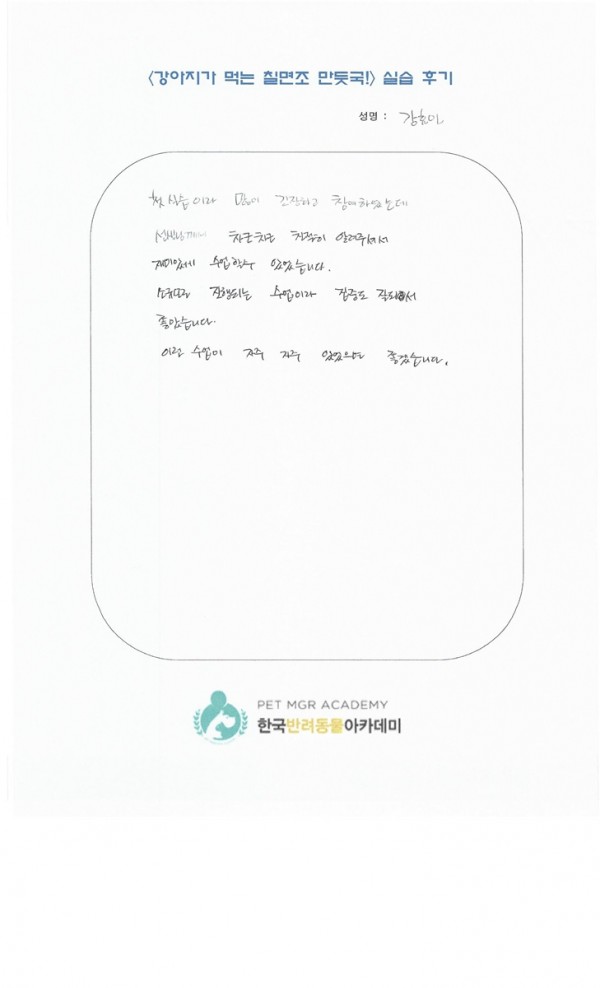 <강아지가 먹는 칠면조 만둣국!> 실습 후기
성명 : 강효민
첫 실습이라 많이 긴장하고 참여하였는데
선생님께서 차근차근 친절히 알려주셔서
재미있게 수업할수 있었습니다.
소규모로 진행되는 수업이라 집중도 잘되어서
좋았습니다.
이런 수업이 자주 자주 있었으면 좋겠습니다.
PET MGR ACADEMY
한국반려동물아카데미